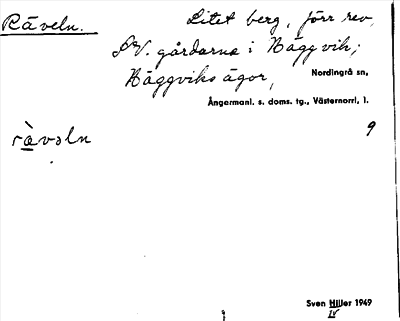 Räveln.
Litet berg, förr rev,
SV. gårdarna i Häggvik;
Häggviks ägor,
Nordingrå sn,
Ångermanl. s. doms. tg., Västernorrl. l.
9
rà̱vəln
Sven Hiller 1949
IV